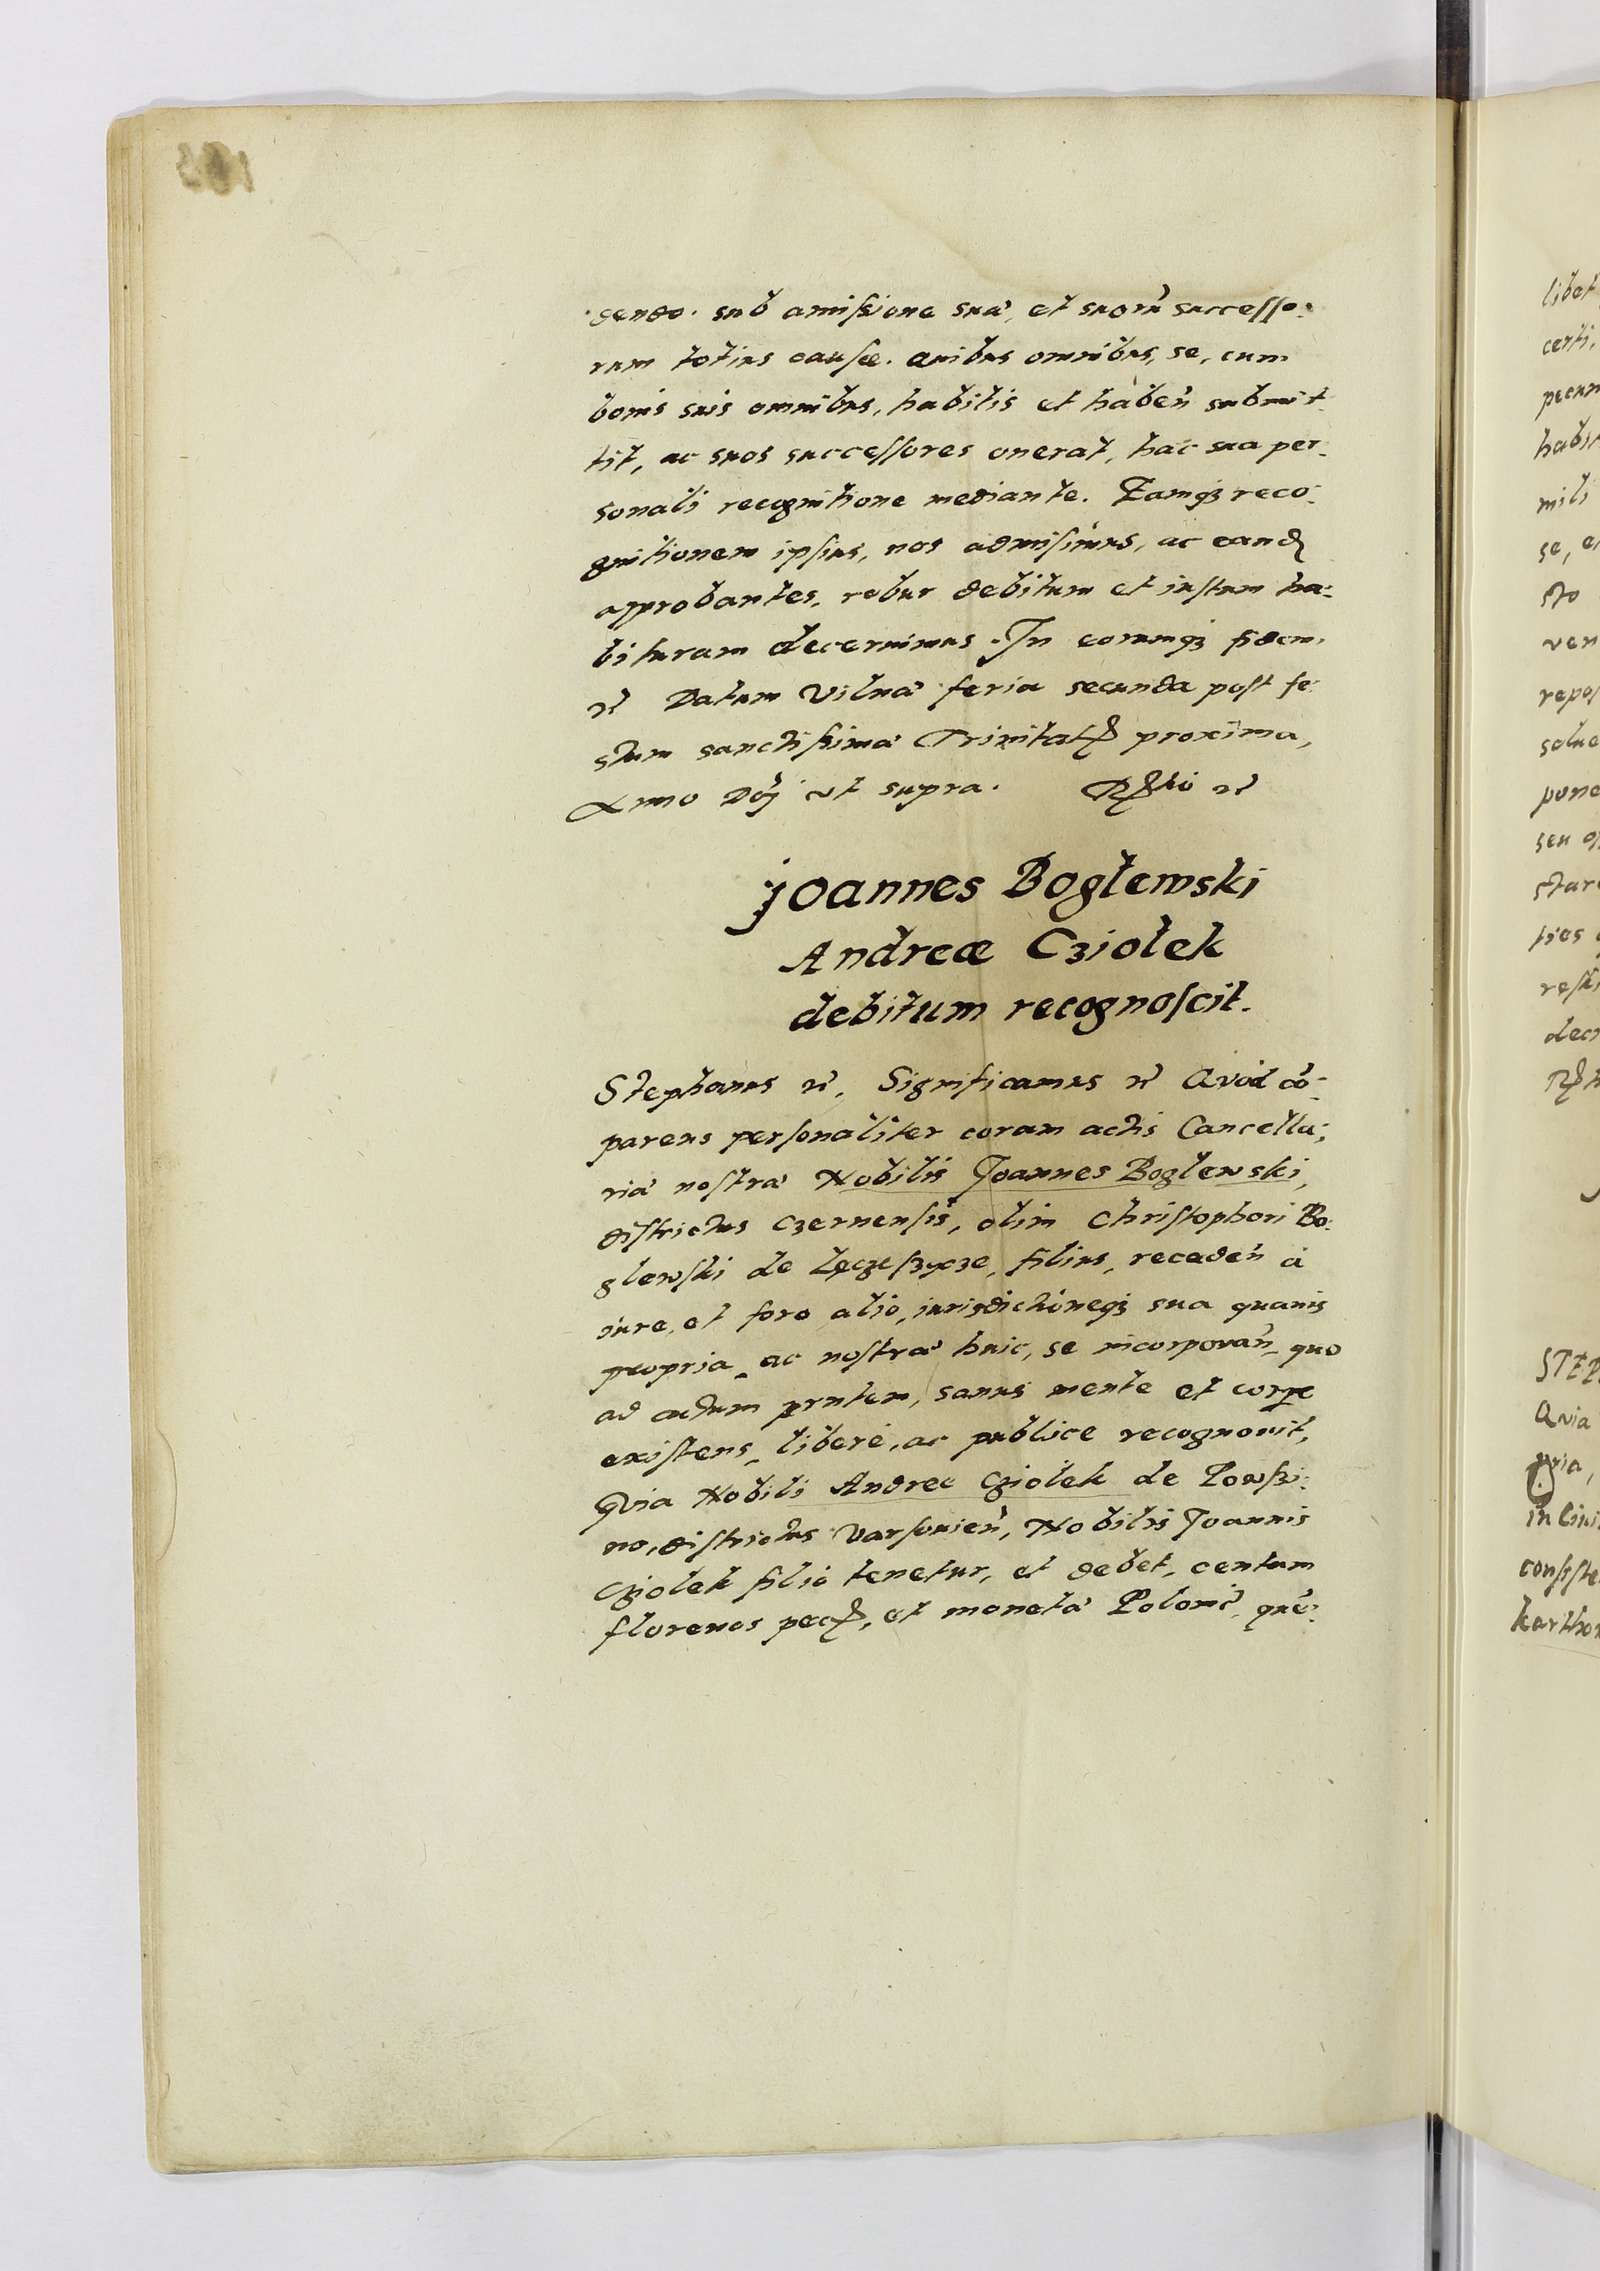 dendo. sub amissione sua, et suorũ successo:
rum totius causæ. Quibus omnibus, se, cum
bonis suis omnibus, habitis et habeñ submit:
tit, ac suos successores onerat, hac sua per:
sonali recognitione mediante. Eamq3 reco:
gnitionem ipsius, nos admisimus, ac eand
approbantes, robur debitum et iustum ha:
bituram decernimus. In eorumq3 fidem
Datum Vilnæ feria secunda post fe:
stum sanctissimæ Trinitat proxima,
Anno Dnĩ ut supra.
Joannes Boglewski
Andreæ Cziolek
debitum recognoscit.
Stephanus etc. Significamus etc Quod cõ:
parens personaliter coram actis Cancella:
riæ nostræ Nobilis Joannes Boglewski,
districtus Czernensis, olim Christophori Bo:
glewski de Leczeszycze, filius, recedeñ à
iure, et foro alio, iurisdictioneq3 sua quavis
propria, ac nostræ huic, se incorporañ, quo
ad actum prntem, sanus mente et corpe
existens, liberè, ac publice recognovit,
Quia Nobili Andree Cziolek de Powszi:
no, districtus Varsovieñ, Nobilis Joannis
Cziolek filio tenetur, et debet, centum
florenos pec, et monetæ Polonic, quẽ: